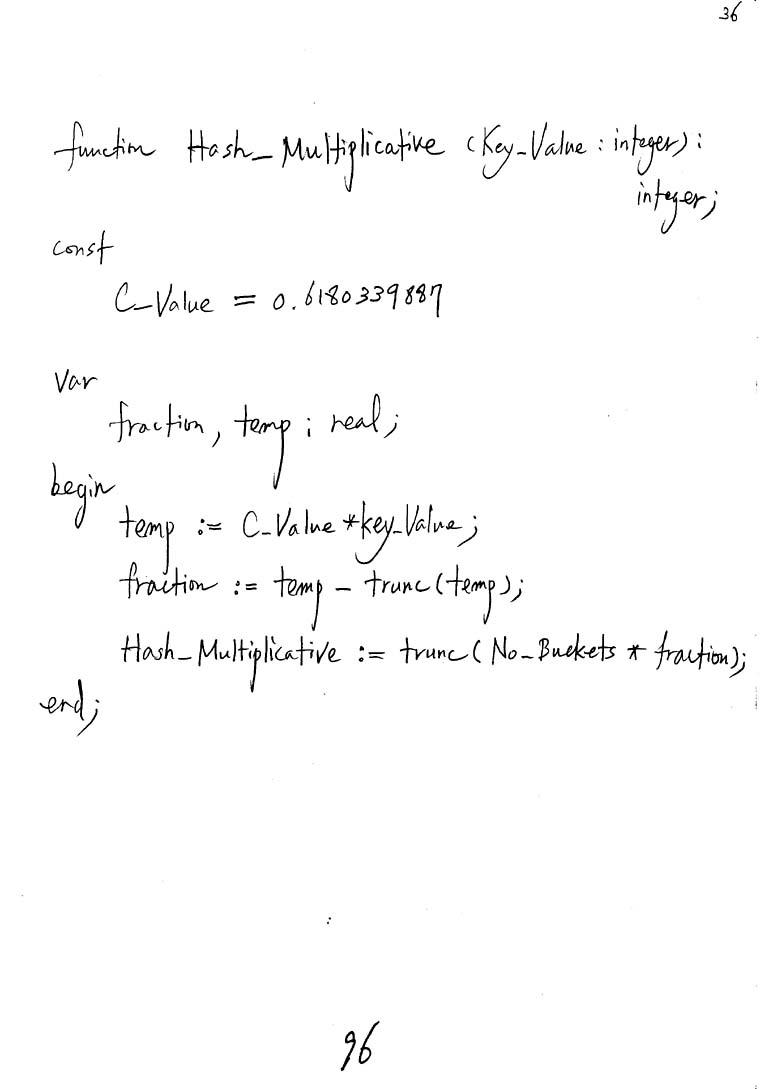 36
function Hash_Multiplicative (Key_Value : integer) :
integer;
const
C_Value = 0.6180339887
Var
fraction, temp ; real;
begin
temp := C_Value * key_Value;
fraction := temp - trunc(temp);
Hash_Multiplicative := trunc( No_Buckets * fraction);
end;
96